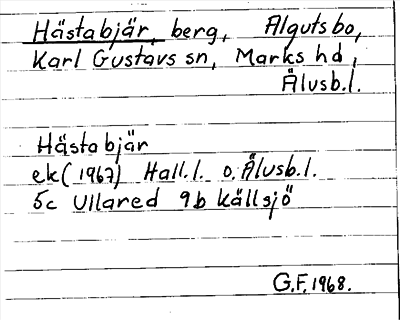 Hästabjär, berg, Algutsbo,
Karl Gustavs sn, Marks hd,
Älvsb.l.
Hästabjär
ek (1967) Hall.l. o. Älvsb.l.
5c Ullared 9b Källsjö
G.F. 1968.